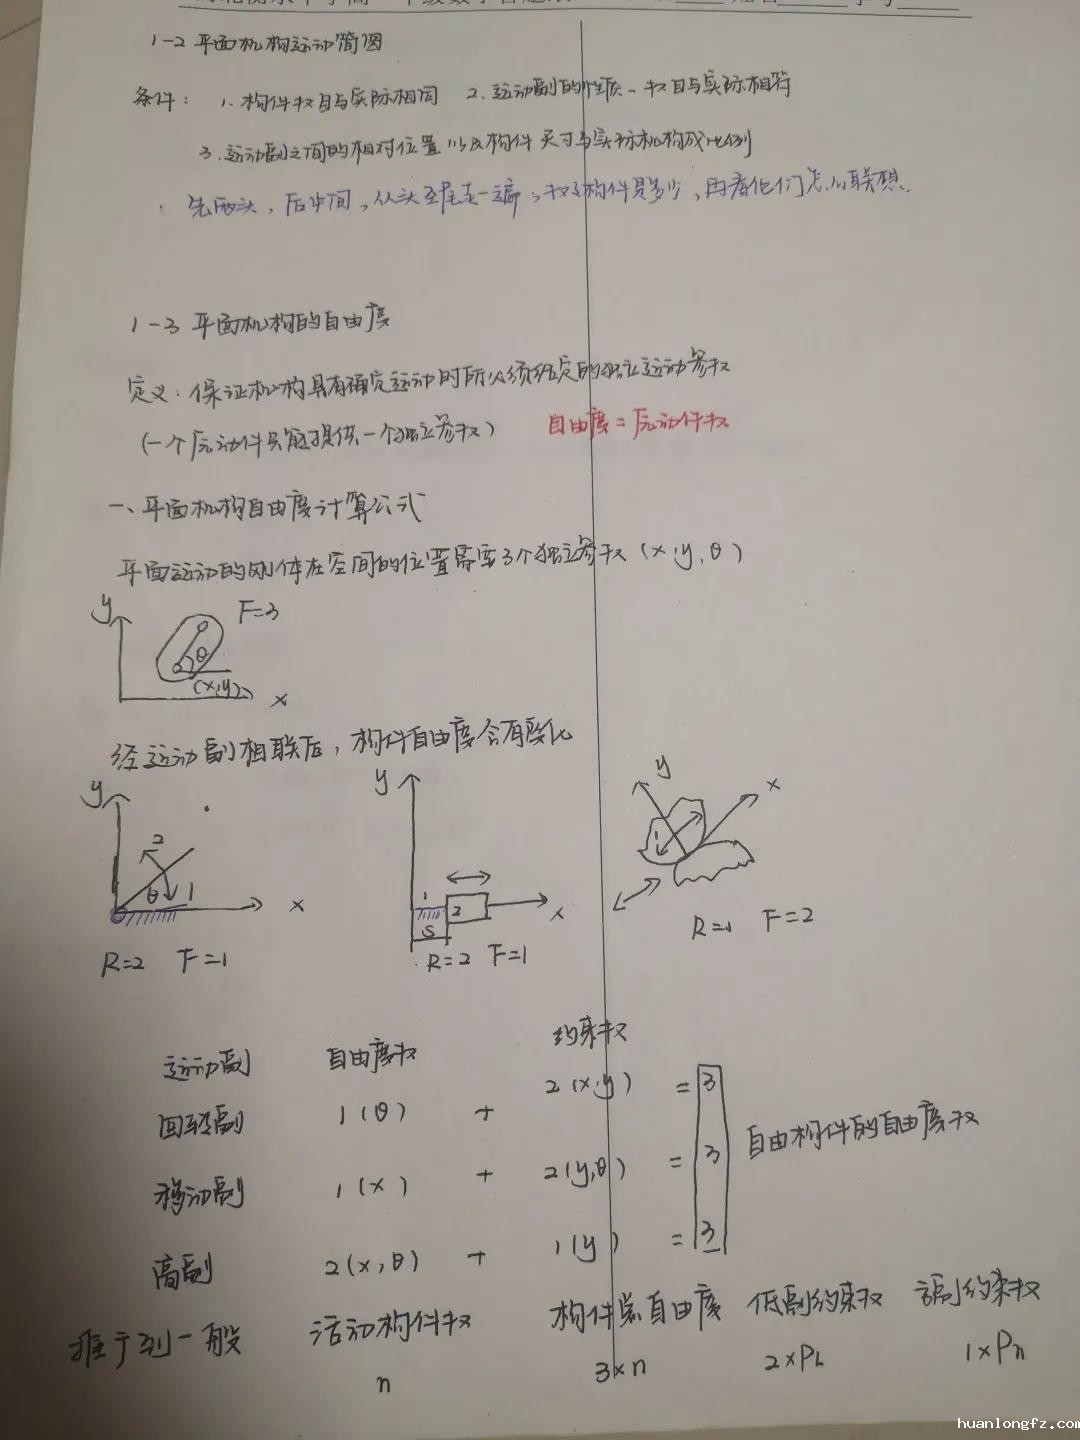 1-2 平面机构运动简图
条件： 1. 构件数目与实际相同 2. 运动副的性质、数目与实际相符
3. 运动副之间的相对位置以及构件尺寸与实际机构成比例
先两头，后中间，从头至尾走一遍，数数构件是多少，再看他们怎么联想.
1-3 平面机构的自由度
定义：保证机构具有确定运动时所必须给定的独立运动参数
(一个原动件只能提供一个独立参数) 自由度=原动件数
一、平面机构自由度计算公式
平面运动的刚体在空间的位置需要3个独立参数 (x, y, θ)
y F=3
θ
(x,y) x
经运动副相联后，构件自由度会有变化
y 2 θ 1 x
R=2 F=1
y 1 2 S x
R=2 F=1
y x 1
R=1 F=2
运动副 自由度数 约束数
回转副 1(θ) + 2(x,y) = 3
移动副 1(x) + 2(y,θ) = 3 自由构件的自由度数
高副 2(x,θ) + 1(y) = 3
推广到一般 活动构件数 构件总自由度 低副约束数 高副约束数
n 3×n 2×PL 1×Pn
huanlongfz.com